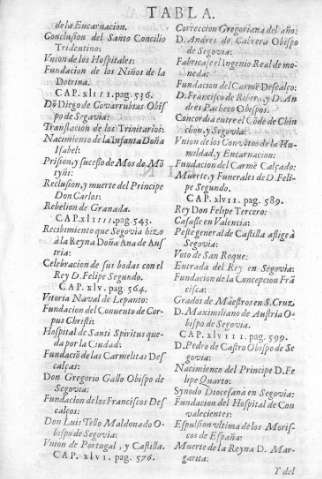 TABLA.
de la Encarnacion.
Conclusion del Santo Concilio
Tridentino:
Vnion de los Hospitales:
Fundacion de los Niños de la
Dotrina.
CAP. xliii. pag. 536.
Dõ Diego de Covarrubias Obis-
po de Segovia:
Translacion de los Trinitarios:
Nacimiento de la Infanta Doña
Isabel:
Prision, y sucesso de Mos de Mõ
tyñi:
Reclusion, y muerte del Principe
Don Carlos:
Rebelion de Granada.
CAP. xliiii. pag. 543.
Recibimiento que Segovia hizo
à la Reyna Doña Ana de Aus-
tria:
Celebracion de sus bodas con el
Rey D. Felipe Segundo.
CAP. xlv. pag. 564.
Vitoria Naval de Lepanto:
Fundacion del Convento de Cor-
pus Christi:
Hospital de Santi Spiritus que-
da por la Ciudad:
Fundaciõ de las Carmelitas Des
calças:
Don Gregorio Gallo Obispo de
Segovia:
Fundacion de los Franciscos Des
calços:
Don Luis Tello Maldonado O-
bispo de Segovia:
Vnion de Portugal, y Castilla.
CAP. xlvi. pag. 576.
Correccion Gregoriana del año:
D. Andres de Cabrera Obispo
de Segovia:
Fabrica, e Ingenio Real de mo-
neda:
Fundacion del Carmẽ Descalço:
D. Francisco de Ribera, y D. An
dres Pacheco Obispos:
Concordia entre el Cõde de Chin
chon, y Segovia:
Vnion de los Conventos de la Hu-
mildad, y Encarnacion:
Fundacion del Carmẽ Calçado:
Muerte, y Funerales de D. Feli-
pe Segundo.
CAP. xlvii. pag. 589.
Rey Don Felipe Tercero:
Casase en Valencia:
Peste general de Castilla aflige à
Segovia:
Voto de San Roque:
Entrada del Rey en Segovia:
Fundacion de la Concepcion Frã
cisca:
Grados de Maestros en S. Cruz
D. Maximiliano de Austria O-
bispo de Segovia.
CAP. xlviii. pag. 599.
D. Pedro de Castro Obispo de Se
govia:
Nacimiento del Principe D. Fe
lipe Quarto:
Synodo Diocesana en Segovia:
Fundacion del Hospital de Con
valecientes:
Espulsion vltima de los Moris-
cos de España:
Muerte de la Reyna D. Mar-
garita:
Y del